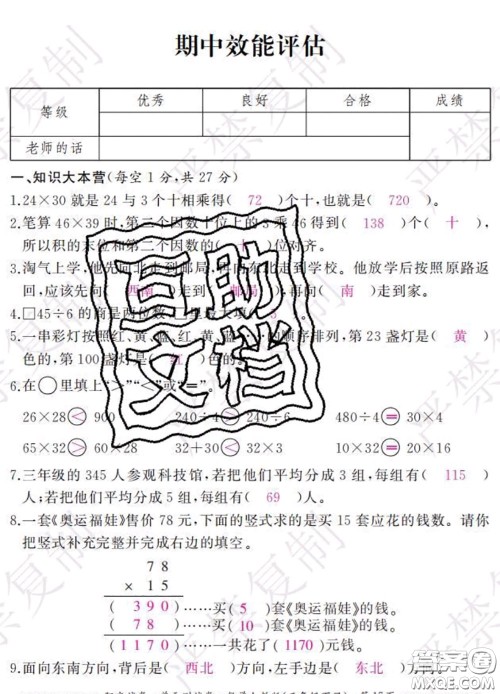 期中效能评估
等级 优秀 良好 合格 成绩
老师的话
一、知识大本营(每空1分,共27分)
1.24×30就是24与3个十相乘得( 72 )个十,也就是( 720 )。
2.笔算46×39时,第二个因数十位上的3乘46得到( 138 )个( 十 ),
所以积的末位和第二个因数的( 十 )位对齐。
3.淘气上学,他先向北走到邮局,再向东北走到学校。他放学后按照原路返
回,应该先向( 西南 )走到( 邮局 ),再向( 南 )走到家。
4.□45÷6的商是两位数,□里最大填( 
5.一串彩灯按照红、黄、蓝、红、黄、蓝……的顺序排列,第23盏灯是( 黄 )
色的,第100盏灯是( 红 )色的。
6.在○里填上“>”“<”或“=”。
26×28 < 900 240÷4 240÷6 480÷4 = 30×4
65×32 60×28 32+30 < 32×3 10×32 = 20×16
7.三年级的345人参观科技馆,若把他们平均分成3组,每组有( 115 )
人;若把他们平均分成5组,每组有( 69 )人。
8.一套《奥运福娃》售价78元,下面的竖式求的是买15套应花的钱数。请你
把竖式补充完整并完成右边的填空。
78
× 15
( 390 )……买( 5 )套《奥运福娃》的钱。
( 78 )……买( 10 )套《奥运福娃》的钱。
( 1170 )……一共花了( 1170 )元钱。
9.面向东南方向,背后是( 西北 )方向,左手边是( 东北 )方向。
严禁复制
互助
文档
作业帮
MXQE.COM